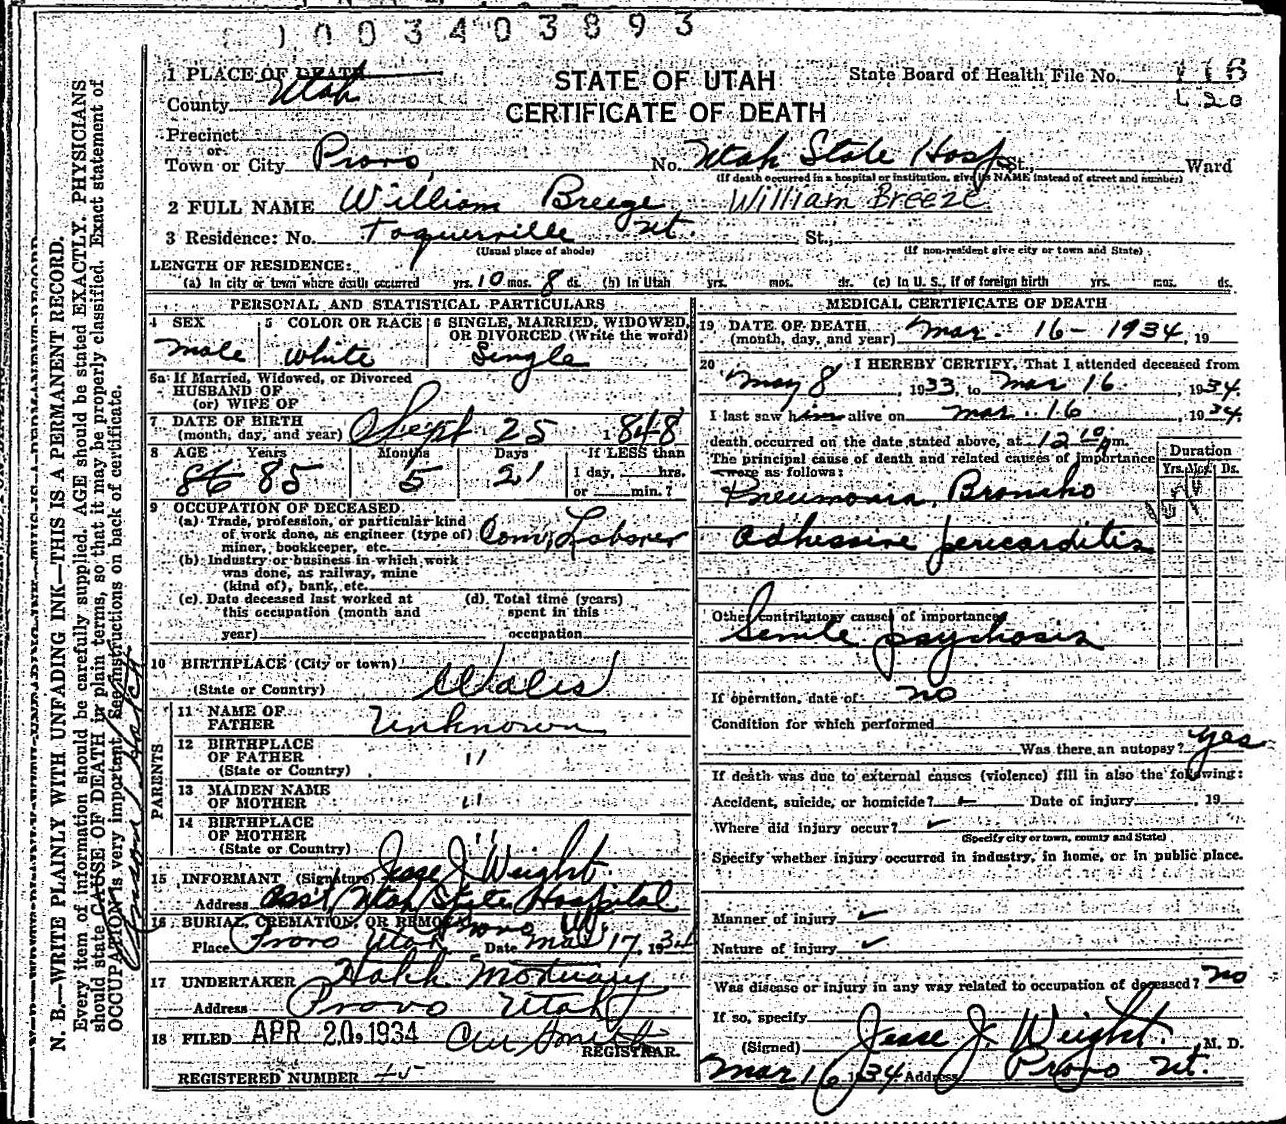 1003403893
1 PLACE OF DEATH
STATE OF UTAH
State Board of Health File No. 116
County Utah
CERTIFICATE OF DEATH
L 20
Precinct
or
Town or City Provo No. Utah State Hosp St., Ward
(If death occurred in a hospital or institution, give its NAME instead of street and number)
2 FULL NAME William Breeze William Breeze
3 Residence: No. Toquerville Ut. St.,
(Usual place of abode) (If non-resident give city or town and State)
LENGTH OF RESIDENCE:
(a) In city or town where death occurred yrs. 10 mos. 8 ds. (b) In Utah yrs. mos. ds. (c) In U. S., if of foreign birth yrs. mos. ds.
PERSONAL AND STATISTICAL PARTICULARS
4 SEX 5 COLOR OR RACE 6 SINGLE, MARRIED, WIDOWED,
OR DIVORCED (Write the word)
male white Single
6a If Married, Widowed, or Divorced
HUSBAND OF
(or) WIFE OF
7 DATE OF BIRTH
(month, day, and year) Sept 25 1848
8 AGE Years Months Days If LESS than
86 85 5 21 1 day, hrs.
or min.?
9 OCCUPATION OF DECEASED
(a) Trade, profession, or particular kind
of work done, as engineer (type of) Com. Laborer
miner, bookkeeper, etc.
(b) Industry or business in which work
was done, as railway, mine
(kind of), bank, etc.
(c) Date deceased last worked at (d) Total time (years)
this occupation (month and spent in this
year) occupation
10 BIRTHPLACE (City or town)
(State or Country) Wales
PARENTS
11 NAME OF
FATHER Unknown
12 BIRTHPLACE
OF FATHER "
(State or Country)
13 MAIDEN NAME
OF MOTHER "
14 BIRTHPLACE
OF MOTHER "
(State or Country)
15 INFORMANT (Signature) Jesse J. Weight
Address Ass't Utah State Hospital
Provo Ut.
16 BURIAL, CREMATION, OR REMOVAL
Place Provo Utah Date Mar 17, 1934
17 UNDERTAKER Hatch Mortuary
Address Provo Utah
18 FILED APR 20 1934
REGISTRAR.
REGISTERED NUMBER
MEDICAL CERTIFICATE OF DEATH
19 DATE OF DEATH
(month, day, and year) Mar. 16 - 1934, 19
20 I HEREBY CERTIFY, That I attended deceased from
May 8, 1933, to Mar 16, 1934.
I last saw him alive on Mar. 16 1934.
death occurred on the date stated above, at 12 10 pm.
The principal cause of death and related causes of importance
were as follows:
Duration
Yrs. Mos. Ds.
Pneumonia, Broncho
Adhesive pericarditis
Other contributory causes of importance
Senile psychosis
If operation, date of no
Condition for which performed
Was there an autopsy? yes
If death was due to external causes (violence) fill in also the following:
Accident, suicide, or homicide? Date of injury , 19
Where did injury occur?
(Specify city or town, county and State)
Specify whether injury occurred in industry, in home, or in public place.
Manner of injury
Nature of injury
Was disease or injury in any way related to occupation of deceased? no
If so, specify
(Signed) Jesse J Weight, M. D.
Mar 16 1934 Address Provo Ut.
N. B.—WRITE PLAINLY WITH UNFADING INK—THIS IS A PERMANENT RECORD.
Every item of information should be carefully supplied. AGE should be stated EXACTLY. PHYSICIANS
should state CAUSE OF DEATH in plain terms, so that it may be properly classified. Exact statement of
OCCUPATION is very important. See instructions on back of certificate.